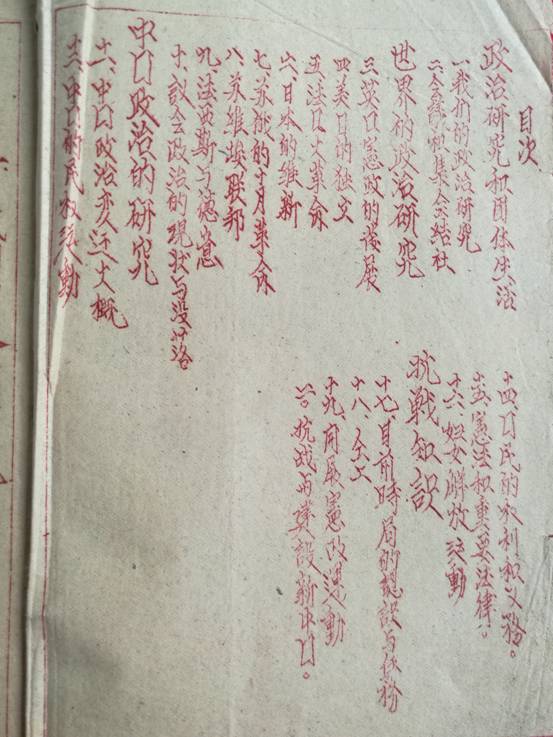 目次
政治研究和团体生活
一、我们的政治研究
二、会议和集会结社
世界的政治研究
三、英囗憲政的發展
四、美囗的独立
五、法囗大革命
六、日本的维新
七、苏俄的十月革命
八、苏维埃联邦
九、法西斯与德意
十、议会政治的现状与没落
中囗政治的研究
十一、中囗政治变迁大概
十二、中囗的民权运动
十四、囗民的权利和义务。
十五、憲法和重要法律。
十六、妇女解放运动
抗戰知识
十七、目前時局的认识与任務
十八、
十九、开展憲政运動
二〇、抗战与建設新中囗。